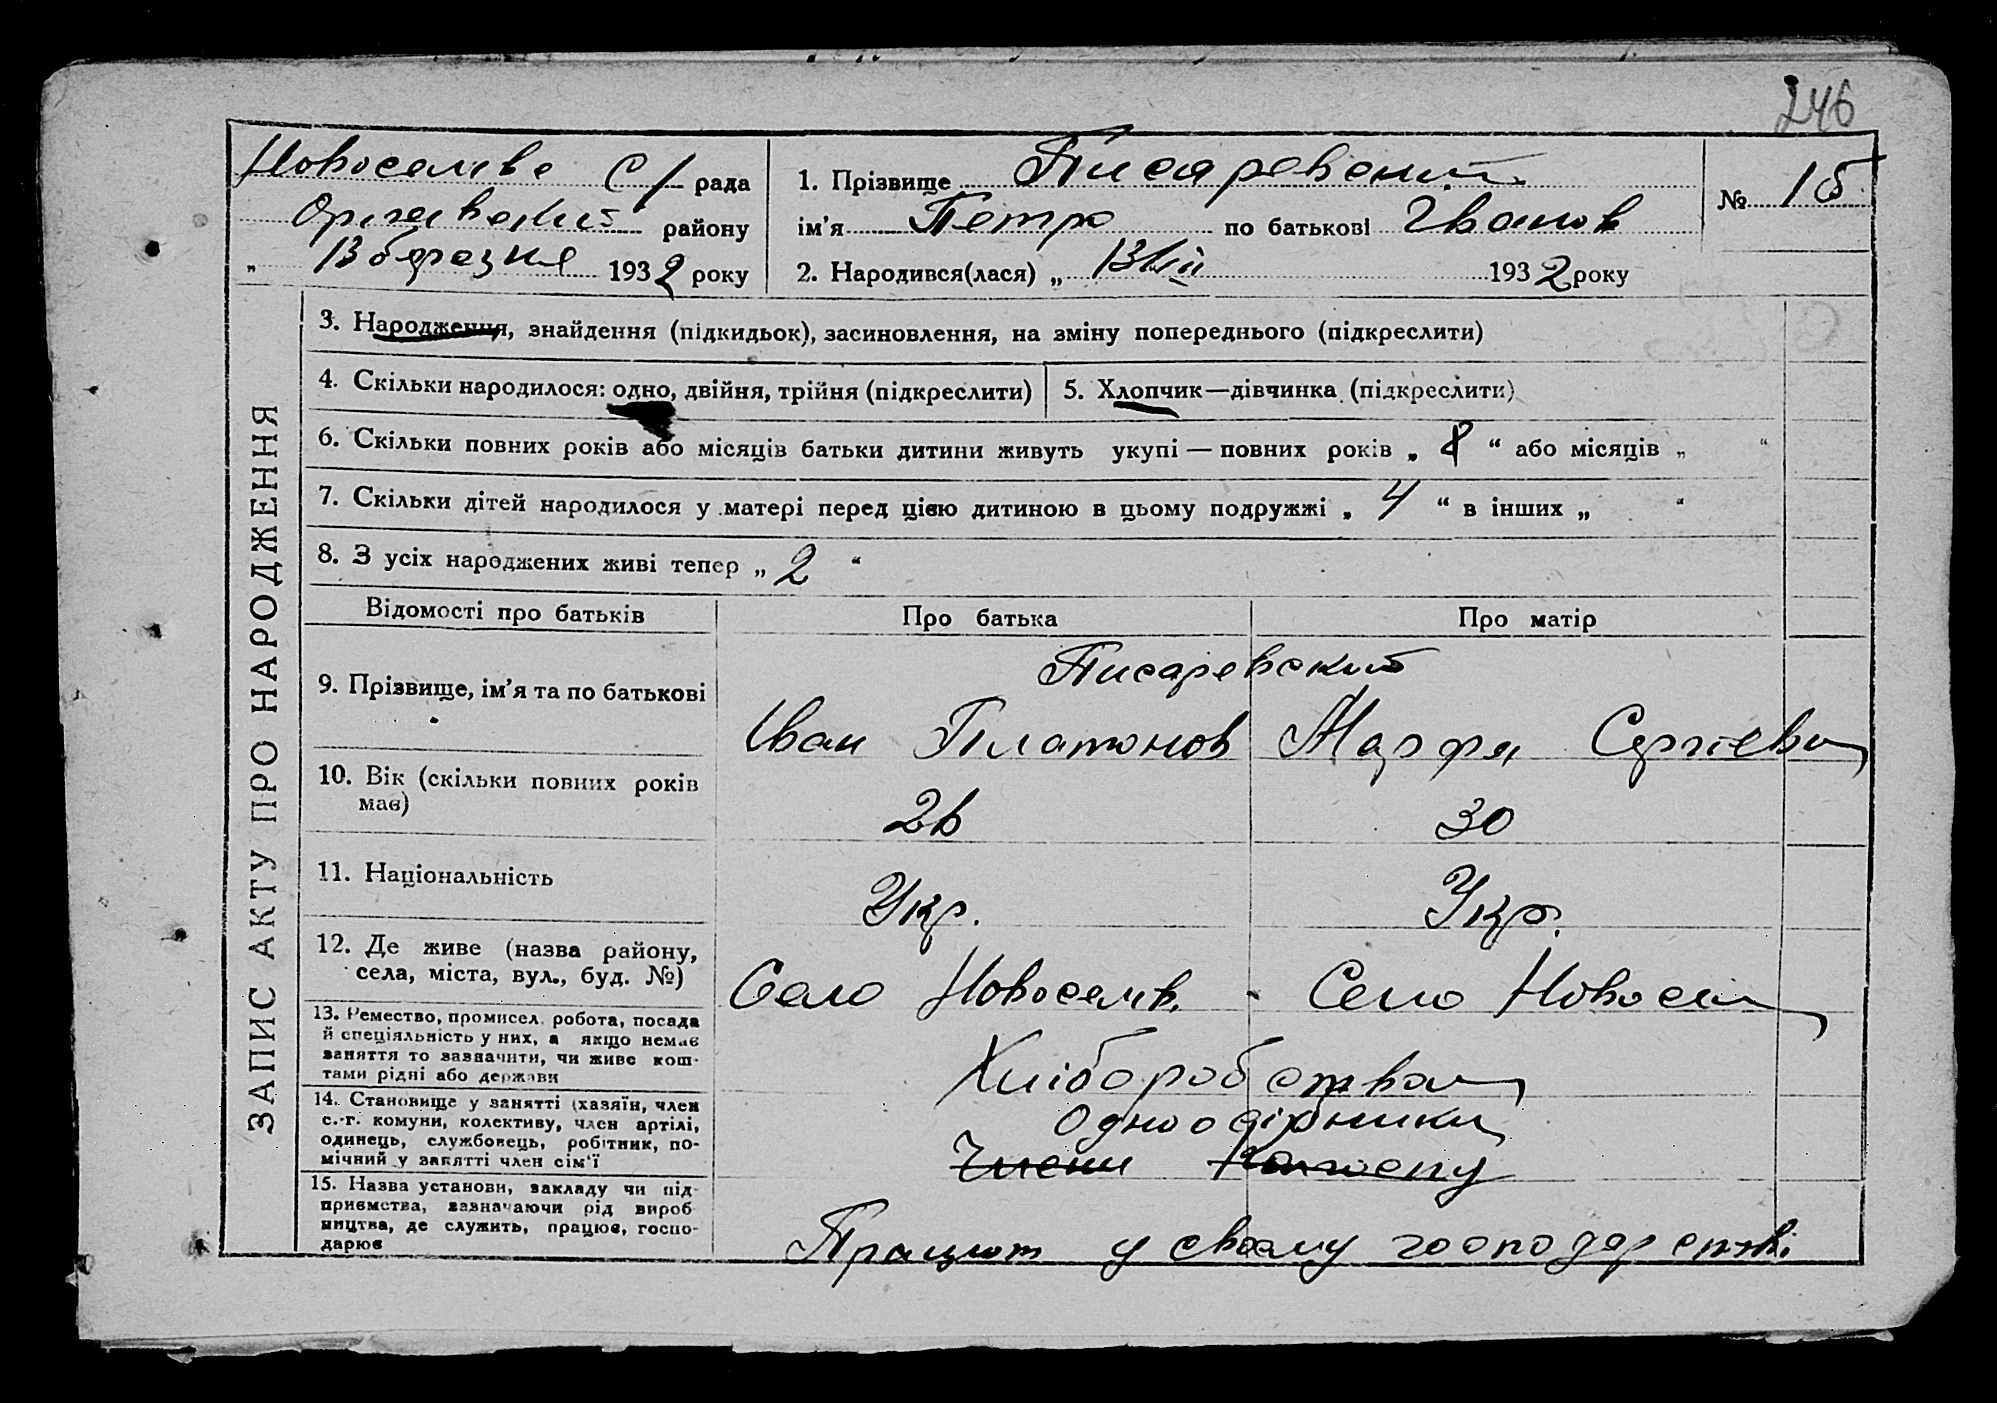 246
Новоселівс С/ рада
району
„ 13 березня 1932 року
1. Прізвище Писаревский
ім'я Петро по батькові Іванов
2. Народився(лася) „ 13/III 1932 року
№ 15
ЗАПИС АКТУ ПРО НАРОДЖЕННЯ
3. Народження, знайдення (підкидьок), засиновлення, на зміну попереднього (підкреслити)
4. Скільки народилося: одно, двійня, трійня (підкреслити)
5. Хлопчик—дівчинка (підкреслити)
6. Скільки повних років або місяців батьки дитини живуть укупі — повних років „ 8 “ або місяців „ “
7. Скільки дітей народилося у матері перед цією дитиною в цьому подружжі „ 4 “ в інших „ “
8. З усіх народжених живі тепер „ 2 “
Відомості про батьків Про батька Про матір
9. Прізвище, ім'я та по батькові
Писаревский
Іван Платонов Марфа Сергіевна
10. Вік (скільки повних років
має)
26 30
11. Національність
Укр. Укр.
12. Де живе (назва району,
села, міста, вул., буд. №)
Село Новоселів. Село Новосел
13. Ремество, промисел. робота, посада
й спеціяльність у них, а якщо немає
заняття то зазначити, чи живе кош-
тами рідні або держави
Хліборобством
14. Становище у занятті (хазяїн, член
с.-г. комуни, колективу, член артілі,
одинець, службовець, робітник, по-
мічний у занятті член сім'ї
Одноосібники
Члени
15. Назва установи, закладу чи під-
приємства, зазначаючи рід вироб
ництва, де служить, працює, госпо-
дарює
Працюют у своєму господарстві